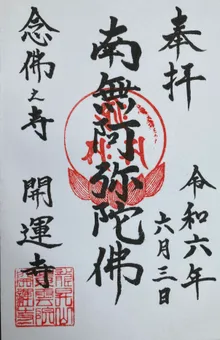 奉拝
令和六年
六月三日
南無阿弥陀佛
念佛之寺
開運寺